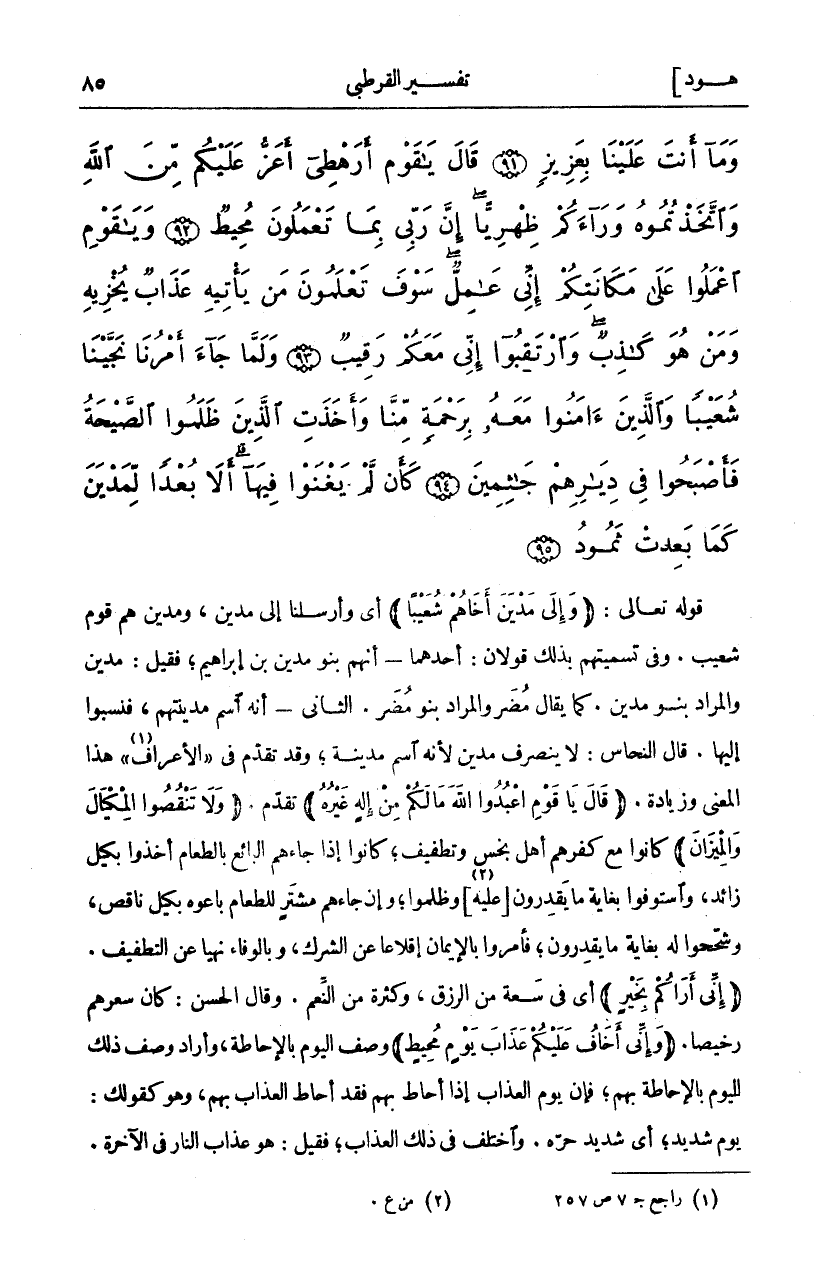 هـــود] تفســـير القرطبي ٨٥
وَمَآ أَنتَ عَلَيْنَا بِعَزِيزٍ ۝٩١ قَالَ يَـٰقَوْمِ أَرَهْطِىٓ أَعَزُّ عَلَيْكُم مِّنَ ٱللَّهِ
وَٱتَّخَذْتُمُوهُ وَرَآءَكُمْ ظِهْرِيًّا ۖ إِنَّ رَبِّى بِمَا تَعْمَلُونَ مُحِيطٌ ۝٩٢ وَيَـٰقَوْمِ
ٱعْمَلُوا عَلَىٰ مَكَانَتِكُمْ إِنِّى عَـٰمِلٌ ۖ سَوْفَ تَعْلَمُونَ مَن يَأْتِيهِ عَذَابٌ يُخْزِيهِ
وَمَنْ هُوَ كَـٰذِبٌ ۖ وَٱرْتَقِبُوٓا إِنِّى مَعَكُمْ رَقِيبٌ ۝٩٣ وَلَمَّا جَآءَ أَمْرُنَا نَجَّيْنَا
شُعَيْبًا وَٱلَّذِينَ ءَامَنُوا مَعَهُۥ بِرَحْمَةٍ مِّنَّا وَأَخَذَتِ ٱلَّذِينَ ظَلَمُوا ٱلصَّيْحَةُ
فَأَصْبَحُوا فِى دِيَـٰرِهِمْ جَـٰثِمِينَ ۝٩٤ كَأَن لَّمْ يَغْنَوْا فِيهَآ ۗ أَلَا بُعْدًا لِّمَدْيَنَ
كَمَا بَعِدَتْ ثَمُودُ ۝٩٥
قوله تعالى : ﴿ وَإِلَى مَدْيَنَ أَخَاهُمْ شُعَيْبًا ﴾ أى وأرسلنا إلى مدين ، ومدين هم قوم
شعيب . وفى تسميتهم بذلك قولان : أحدهما — أنهم بنو مدين بن إبراهيم ؛ فقيل : مدين
والمراد بنــو مدين . كما يقال مُضَر والمراد بنو مُضَر . الثانى — أنه ٱسم مدينتهم ، فنسبوا
إليها . قال النحاس : لا ينصرف مدين لأنه ٱسم مدينــة ؛ وقد تقدّم فى «الأعراف(١)» هذا
المعنى وزيادة . ﴿ قَالَ يَا قَوْمِ اعْبُدُوا اللهَ مَا لَكُمْ مِنْ إِلَهٍ غَيْرُهُ ﴾ تقدّم . ﴿ وَلَا تَنْقُصُوا الْمِكْيَالَ
وَالْمِيزَانَ ﴾ كانوا مع كفرهم أهل بخس وتطفيف ؛ كانوا إذا جاءهم البائع بالطعام أخذوا بكيل
زائد ، وٱستوفوا بغاية ما يَقدِرون [عليه](٢) وظلموا ؛ وإن جاءهم مشترٍ للطعام باعوه بكيل ناقص ،
وشحّحوا له بغاية ما يقدرون ؛ فأمروا بالإيمان إقلاعا عن الشرك ، وبالوفاء نهيا عن التطفيف .
﴿ إِنِّى أَرَاكُمْ بِخَيْرٍ ﴾ أى فى سَعة من الرزق ، وكثرة من النِّعم . وقال الحسن : كان سعرهم
رخيصا . ﴿ وَإِنِّى أَخَافُ عَلَيْكُمْ عَذَابَ يَوْمٍ مُحِيطٍ ﴾ وصف اليوم بالإحاطة ، وأراد وصف ذلك
لليوم بالإحاطة بهم ؛ فإن يوم العذاب إذا أحاط بهم فقد أحاط العذاب بهم ، وهو كقولك :
يوم شديد ؛ أى شديد حرّه . وٱختلف فى ذلك العذاب ؛ فقيل : هو عذاب النار فى الآخرة .
(١) راجع جـ ٧ ص ٢٥٧ (٢) من ع .